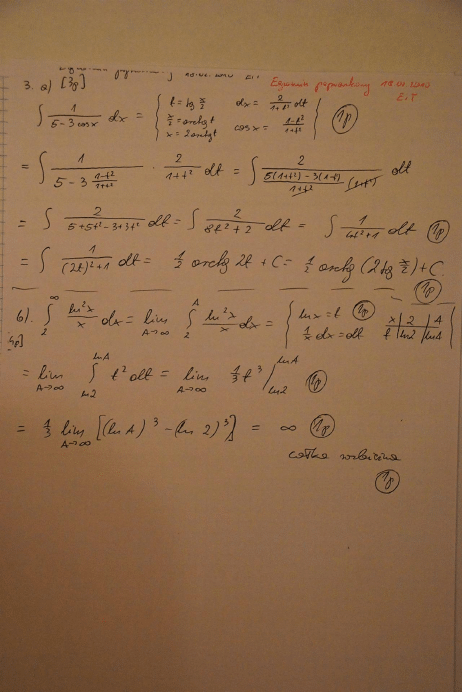 Egzamin poprawkowy 18.02.2013
EiT
3. a) [3p]
∫ 1/(5-3cosx) dx = { t = tg x/2 dx = 2/(1+t²) dt
x/2 = arctgt
x = 2arctgt cosx = (1-t²)/(1+t²) } 1p
= ∫ 1/(5-3 (1-t²)/(1+t²)) · 2/(1+t²) dt = ∫ 2/((5(1+t²)-3(1-t²))/(1+t²) (1+t²)) dt
= ∫ 2/(5+5t²-3+3t²) dt = ∫ 2/(8t²+2) dt = ∫ 1/(4t²+1) dt 1p
= ∫ 1/((2t)²+1) dt = 1/2 arctg 2t + C = 1/2 arctg (2tg x/2) + C. 1p
b) ∫₂^∞ ln²x/x dx = lim A→∞ ∫₂^A ln²x/x dx = { lnx = t 1p x | 2 | A
[4p] 1/x dx = dt t | ln2 | lnA
= lim A→∞ ∫ln2^lnA t² dt = lim A→∞ 1/3 t³ |ln2^lnA 1p
= 1/3 lim A→∞ [(lnA)³ - (ln 2)³] = ∞ 1p
całka rozbieżna
1p